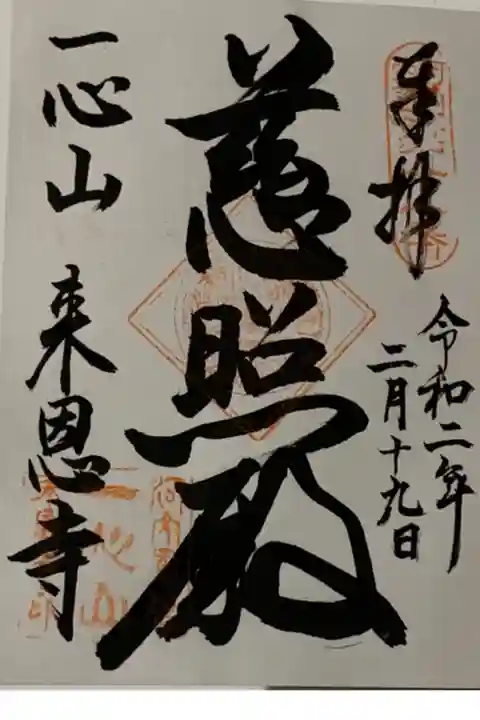 奉拝
令和二年
二月十九日
慈照殿
一心山 来恩寺